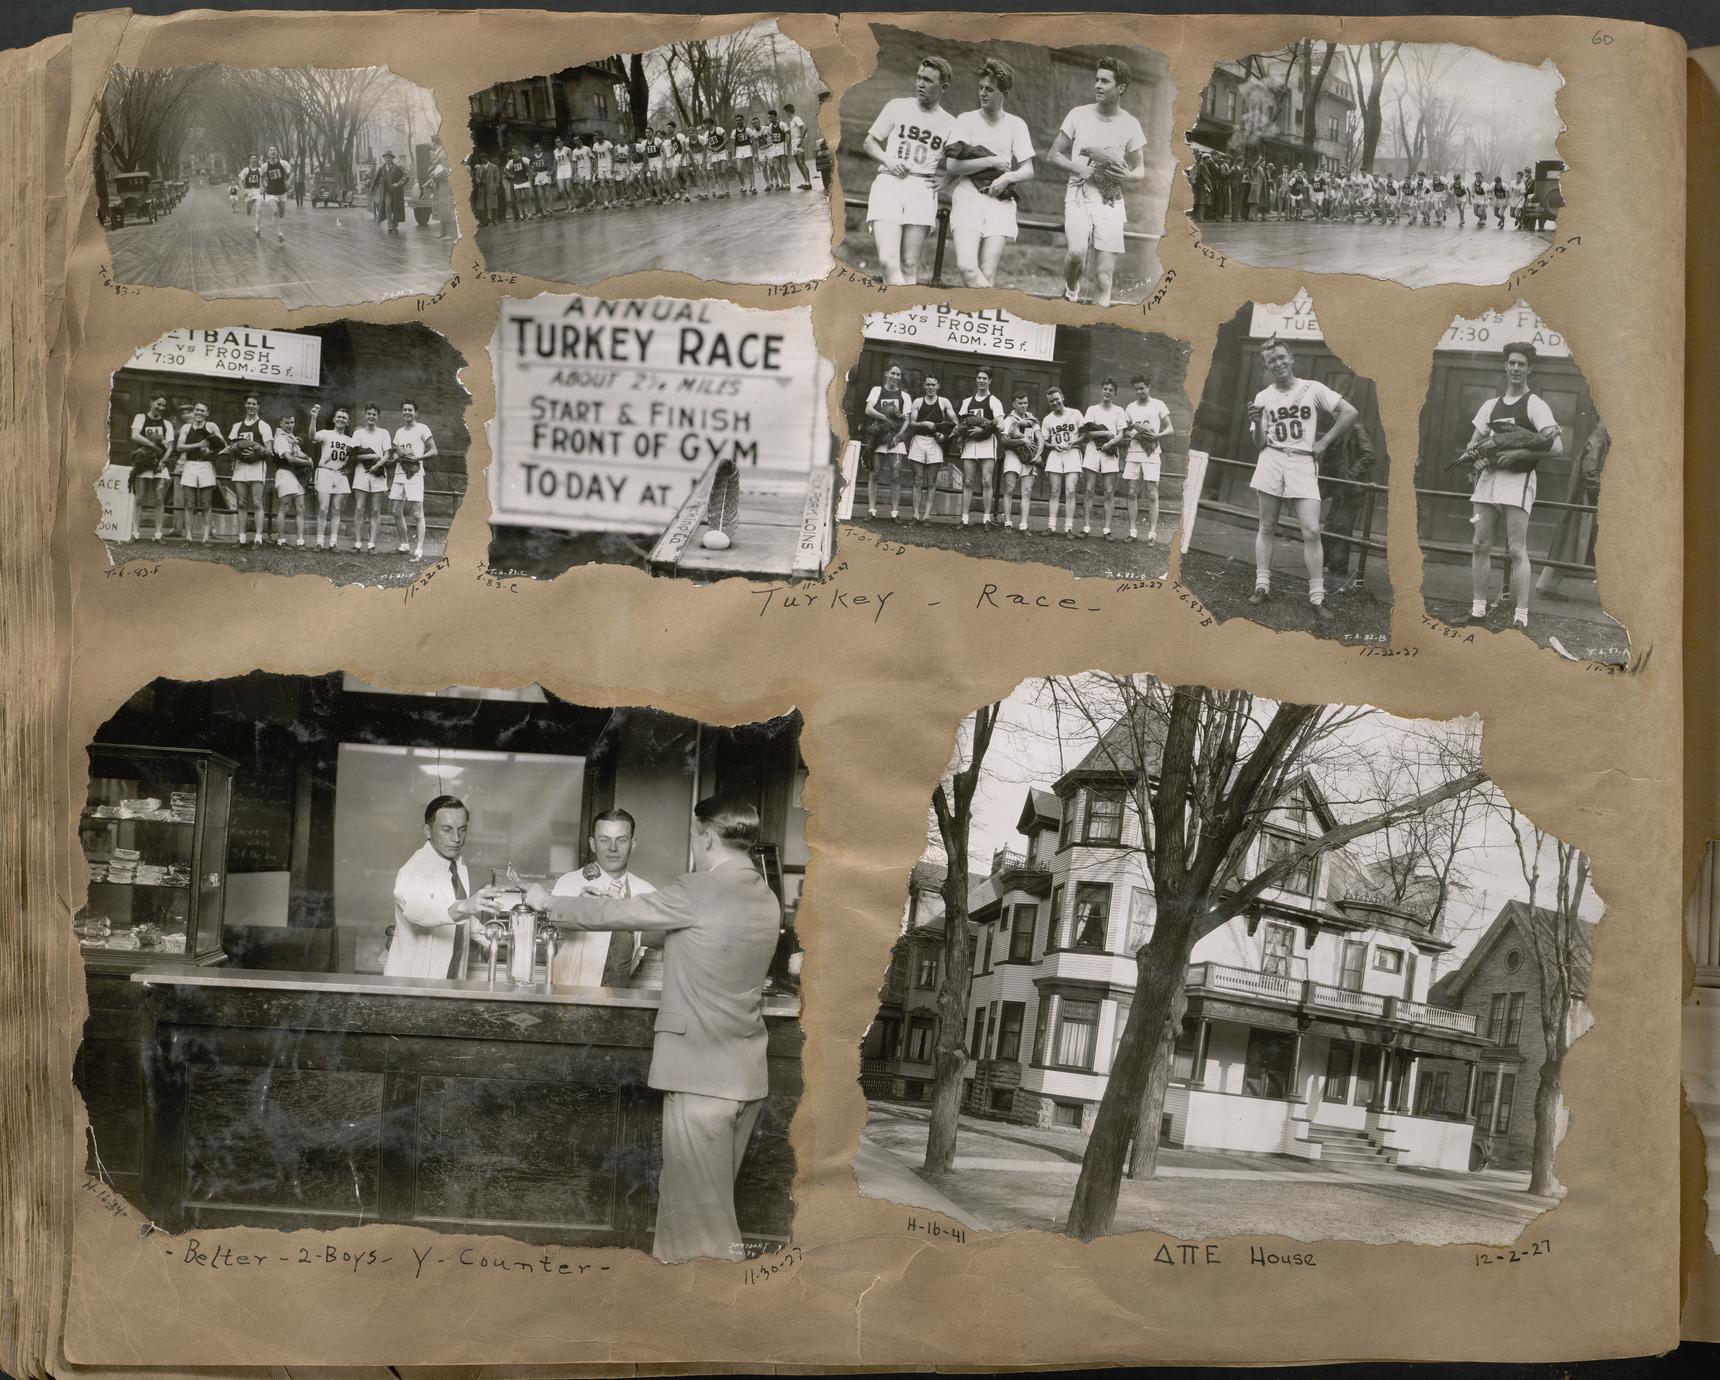 60
94
81
1928
00
T-6-83-J
11-22-27
T-6-82-E
11-22-27
T-6-83-H
11-22-27
T-6-83-I
11-22-27
ETBALL
vs FROSH
Y 7:30 ADM. 25¢.
1928
00
ACE
DON
T-6-83-F
11-22-27
ANNUAL
TURKEY RACE
ABOUT 2½ MILES
START & FINISH
FRONT OF GYM
TO-DAY AT
PORK LOINS
T-6-83-C
6-83-C
11-22-27
TBALL
vs FROSH
Y 7:30 ADM. 25¢.
1928
00
T-6-83-D
T-6-83-D
11-22-27
VA
TUE
1928
00
T-6-83-B
T-6-83-B
11-22-27
vs FR
7:30 AD
T-6-83-A
T-6-83-A
Turkey - Race-
CRACKER
JACK
H-16-34-
- Belter - 2-Boys - Y - Counter -
11-30-27
H-16-41
ΔΠΕ House
12-2-27